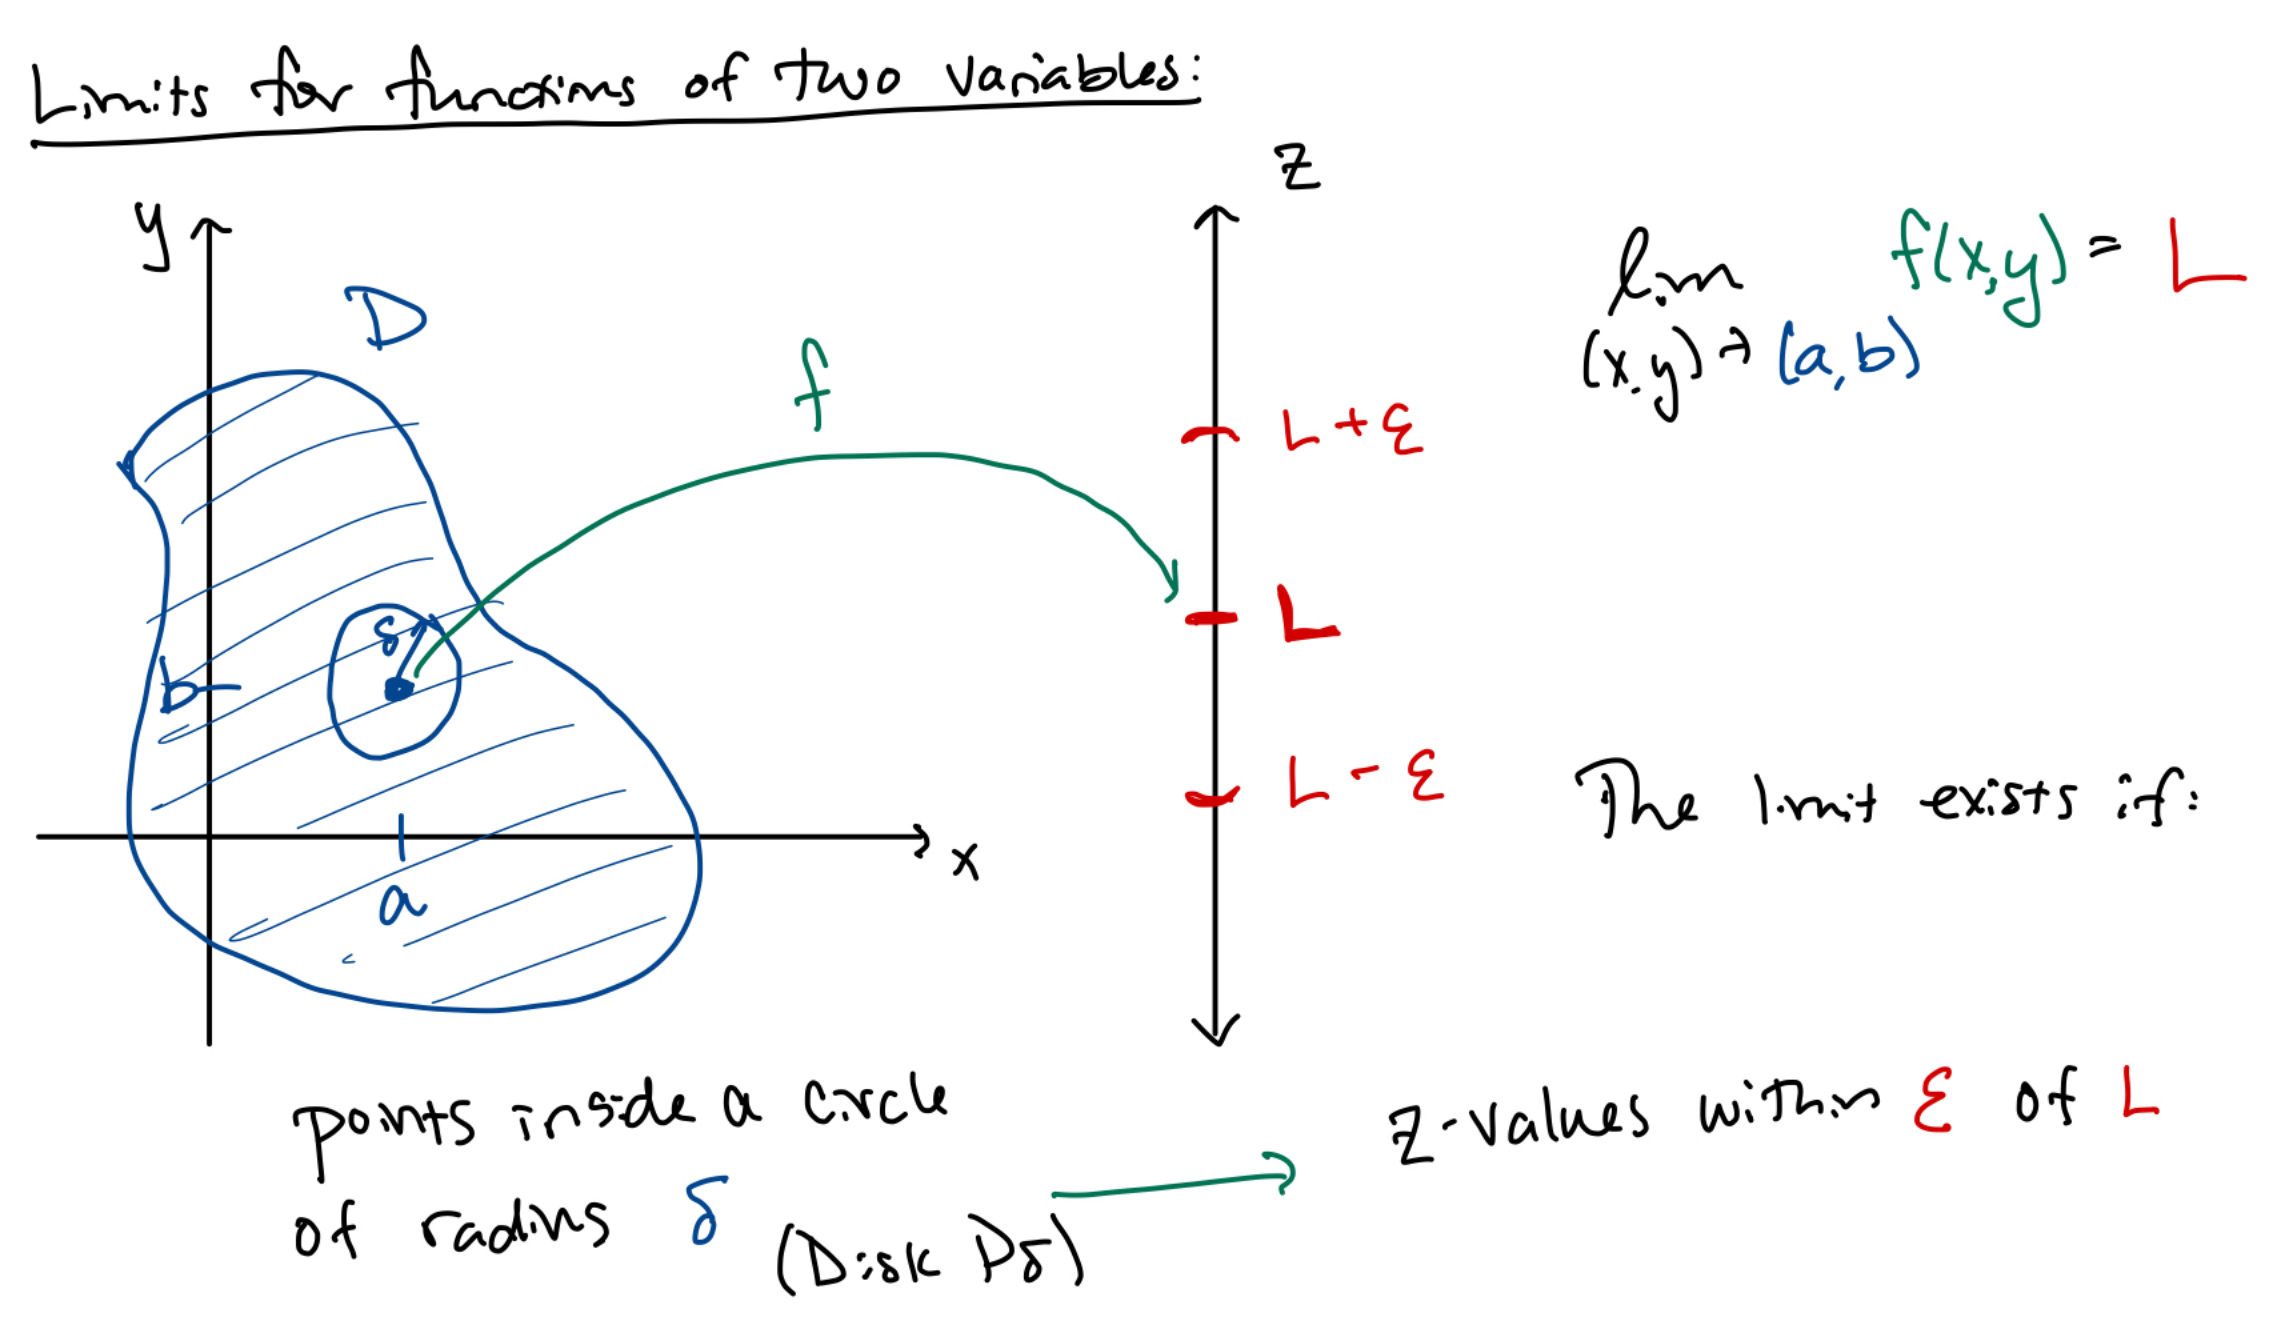 Limits for functions of two variables:
y
D
f
z
lim f(x,y) = L
(x,y) → (a,b)
L + ε
δ
L
b
L - ε
The limit exists if:
x
a
points inside a circle
of radius δ (Disk Dδ)
z-values within ε of L